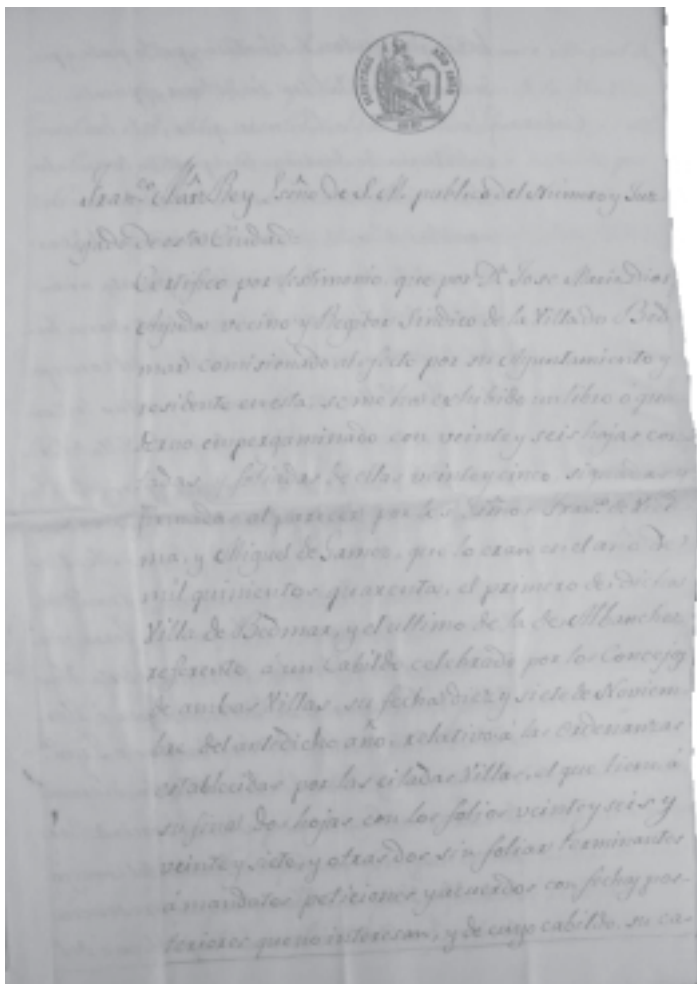 Fran.co Mar. Rey Esño de S. M. publico del Numero y Juz
gado de esta Ciudad:
Certifico por testimonio, que por Dn Jose Maria
vecino y Regidor Sindico de la Villa de Bed
mar comisionado al efecto por su Ayuntamiento y
residente en esta, se me ha exhibido un libro o qua
derno empergaminado con veinte y seis hojas
y foliadas de ellas veinte y cinco
firmadas al parecer por los Fran.co de
y Miguel de Gamez, que lo eran en el año de
mil quinientos quarenta, el primero de dicha
Villa de Bedmar, y el ultimo de la de Albanchez
referente á un Cabildo celebrado por los Concejos
de ambas Villas, su fecha diez y siete de Noviem
bre del antedicho año, relativo á las Ordenanzas
establecidas por las citadas Villas, el que tiene á
su final dos hojas con los folios veinte y seis y
veinte y siete, y otras dos sin foliar terminantes
á mandatos, peticiones y acuerdos con fechas pos-
teriores que no interesan, y de cuyo cabildo, su ca-